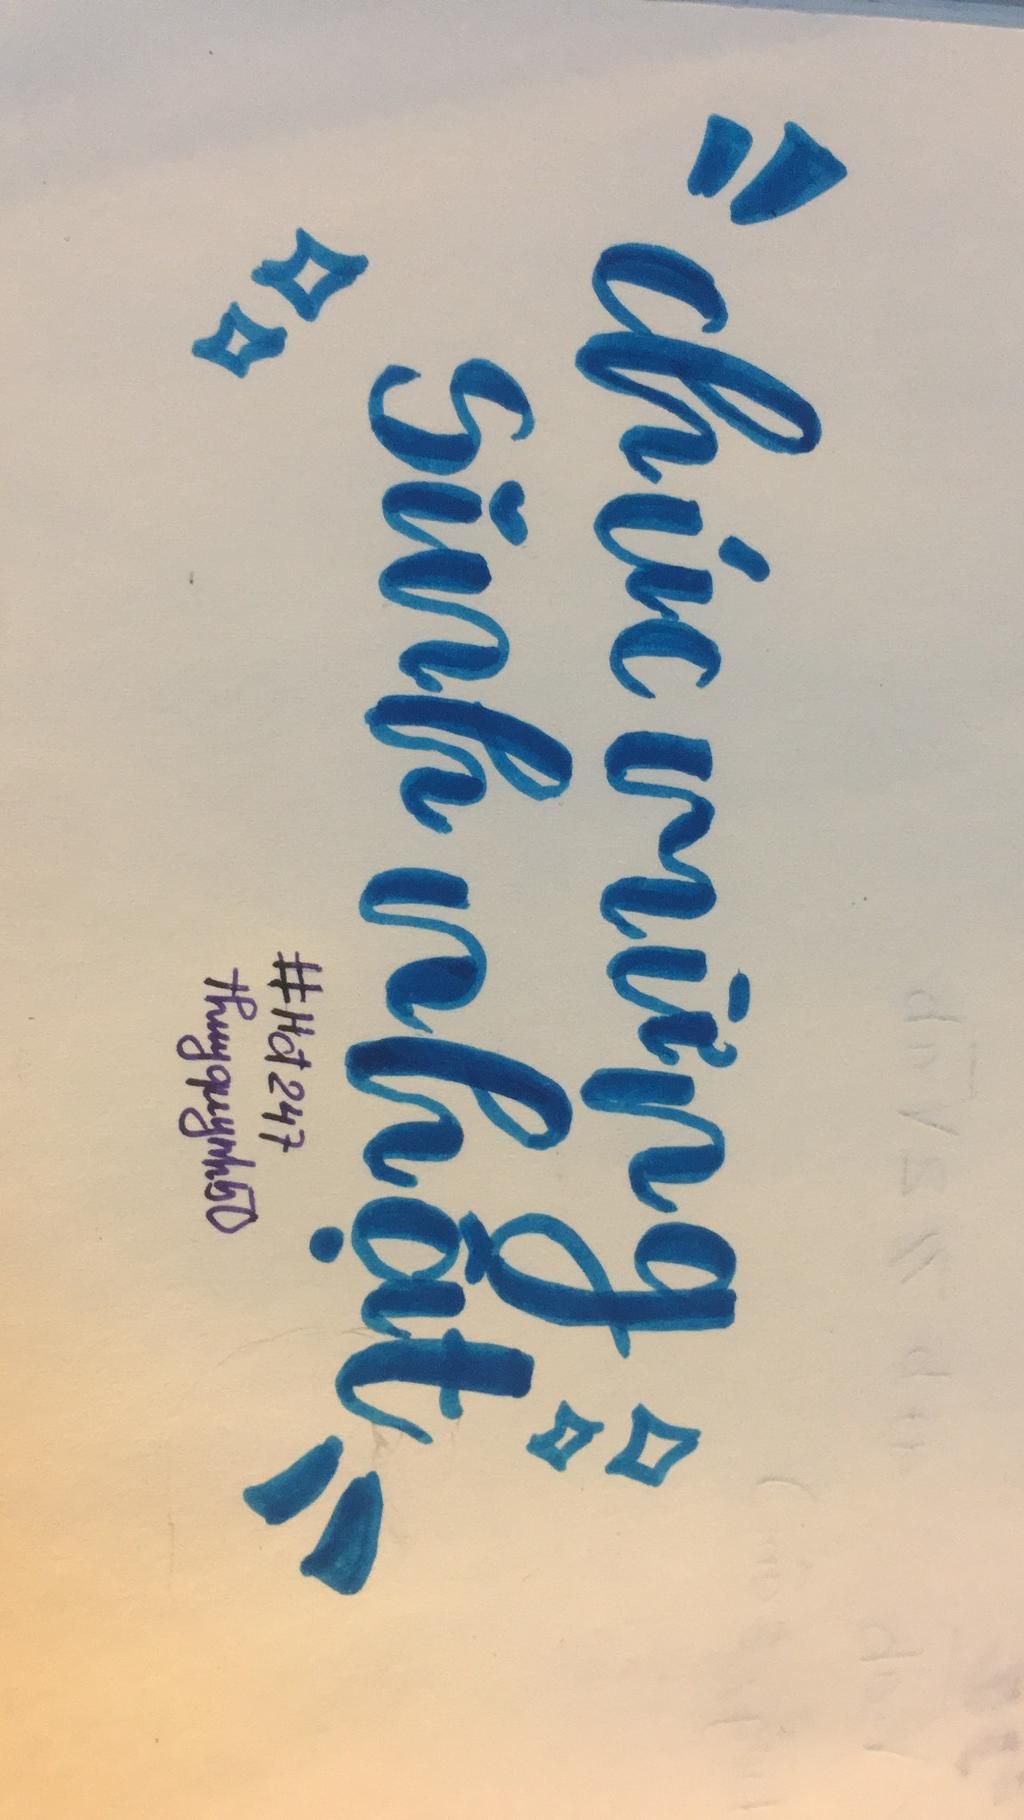 chúc mừng
sinh nhật
#Hot247
thuyquynh50